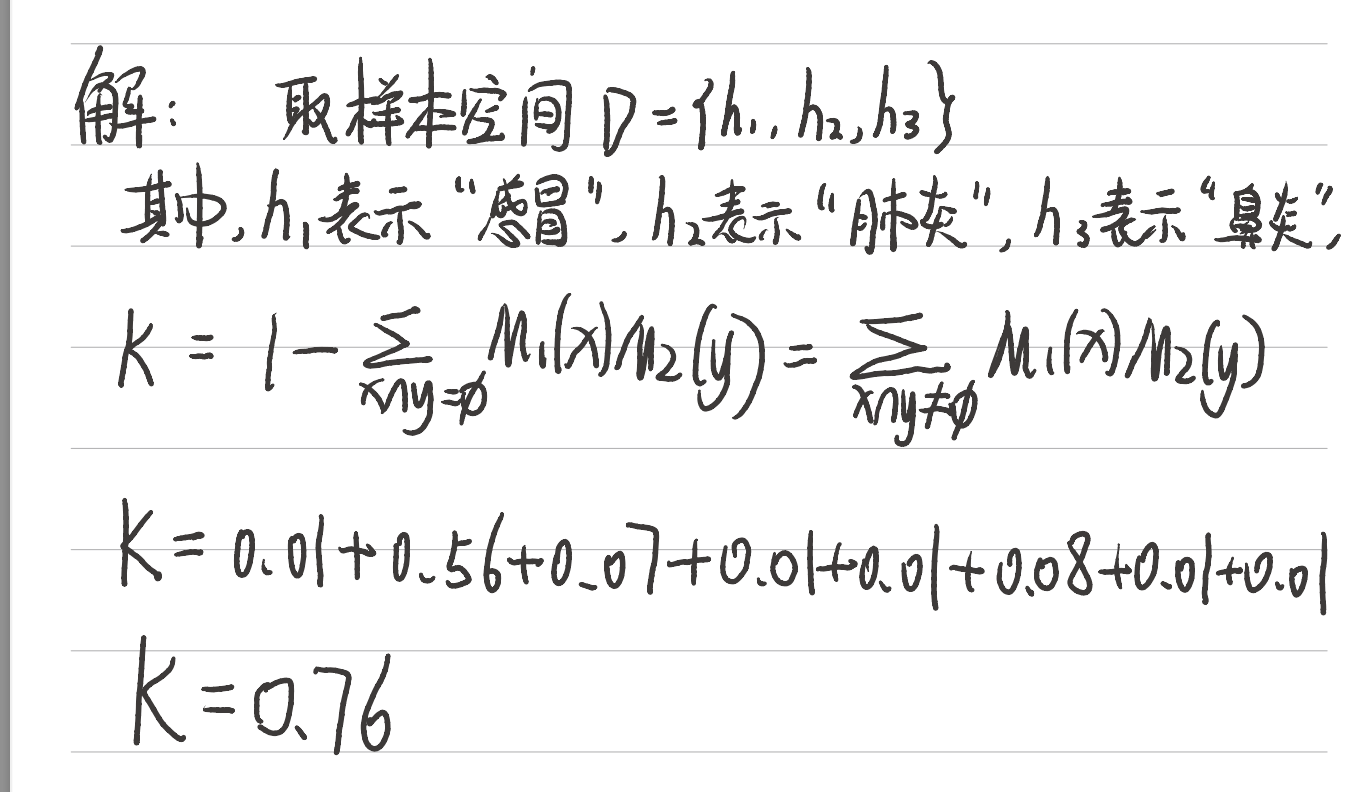 解: 取样本空间 D={h₁, h₂, h₃}
其中, h₁表示“感冒”, h₂表示“肺炎”, h₃表示“鼻炎”,
K = 1 - ∑_{x∩y=∅} M₁(x)M₂(y) = ∑_{x∩y≠∅} M₁(x)M₂(y)
K = 0.01+0.56+0.07+0.01+0.01+0.08+0.01+0.01
K = 0.76